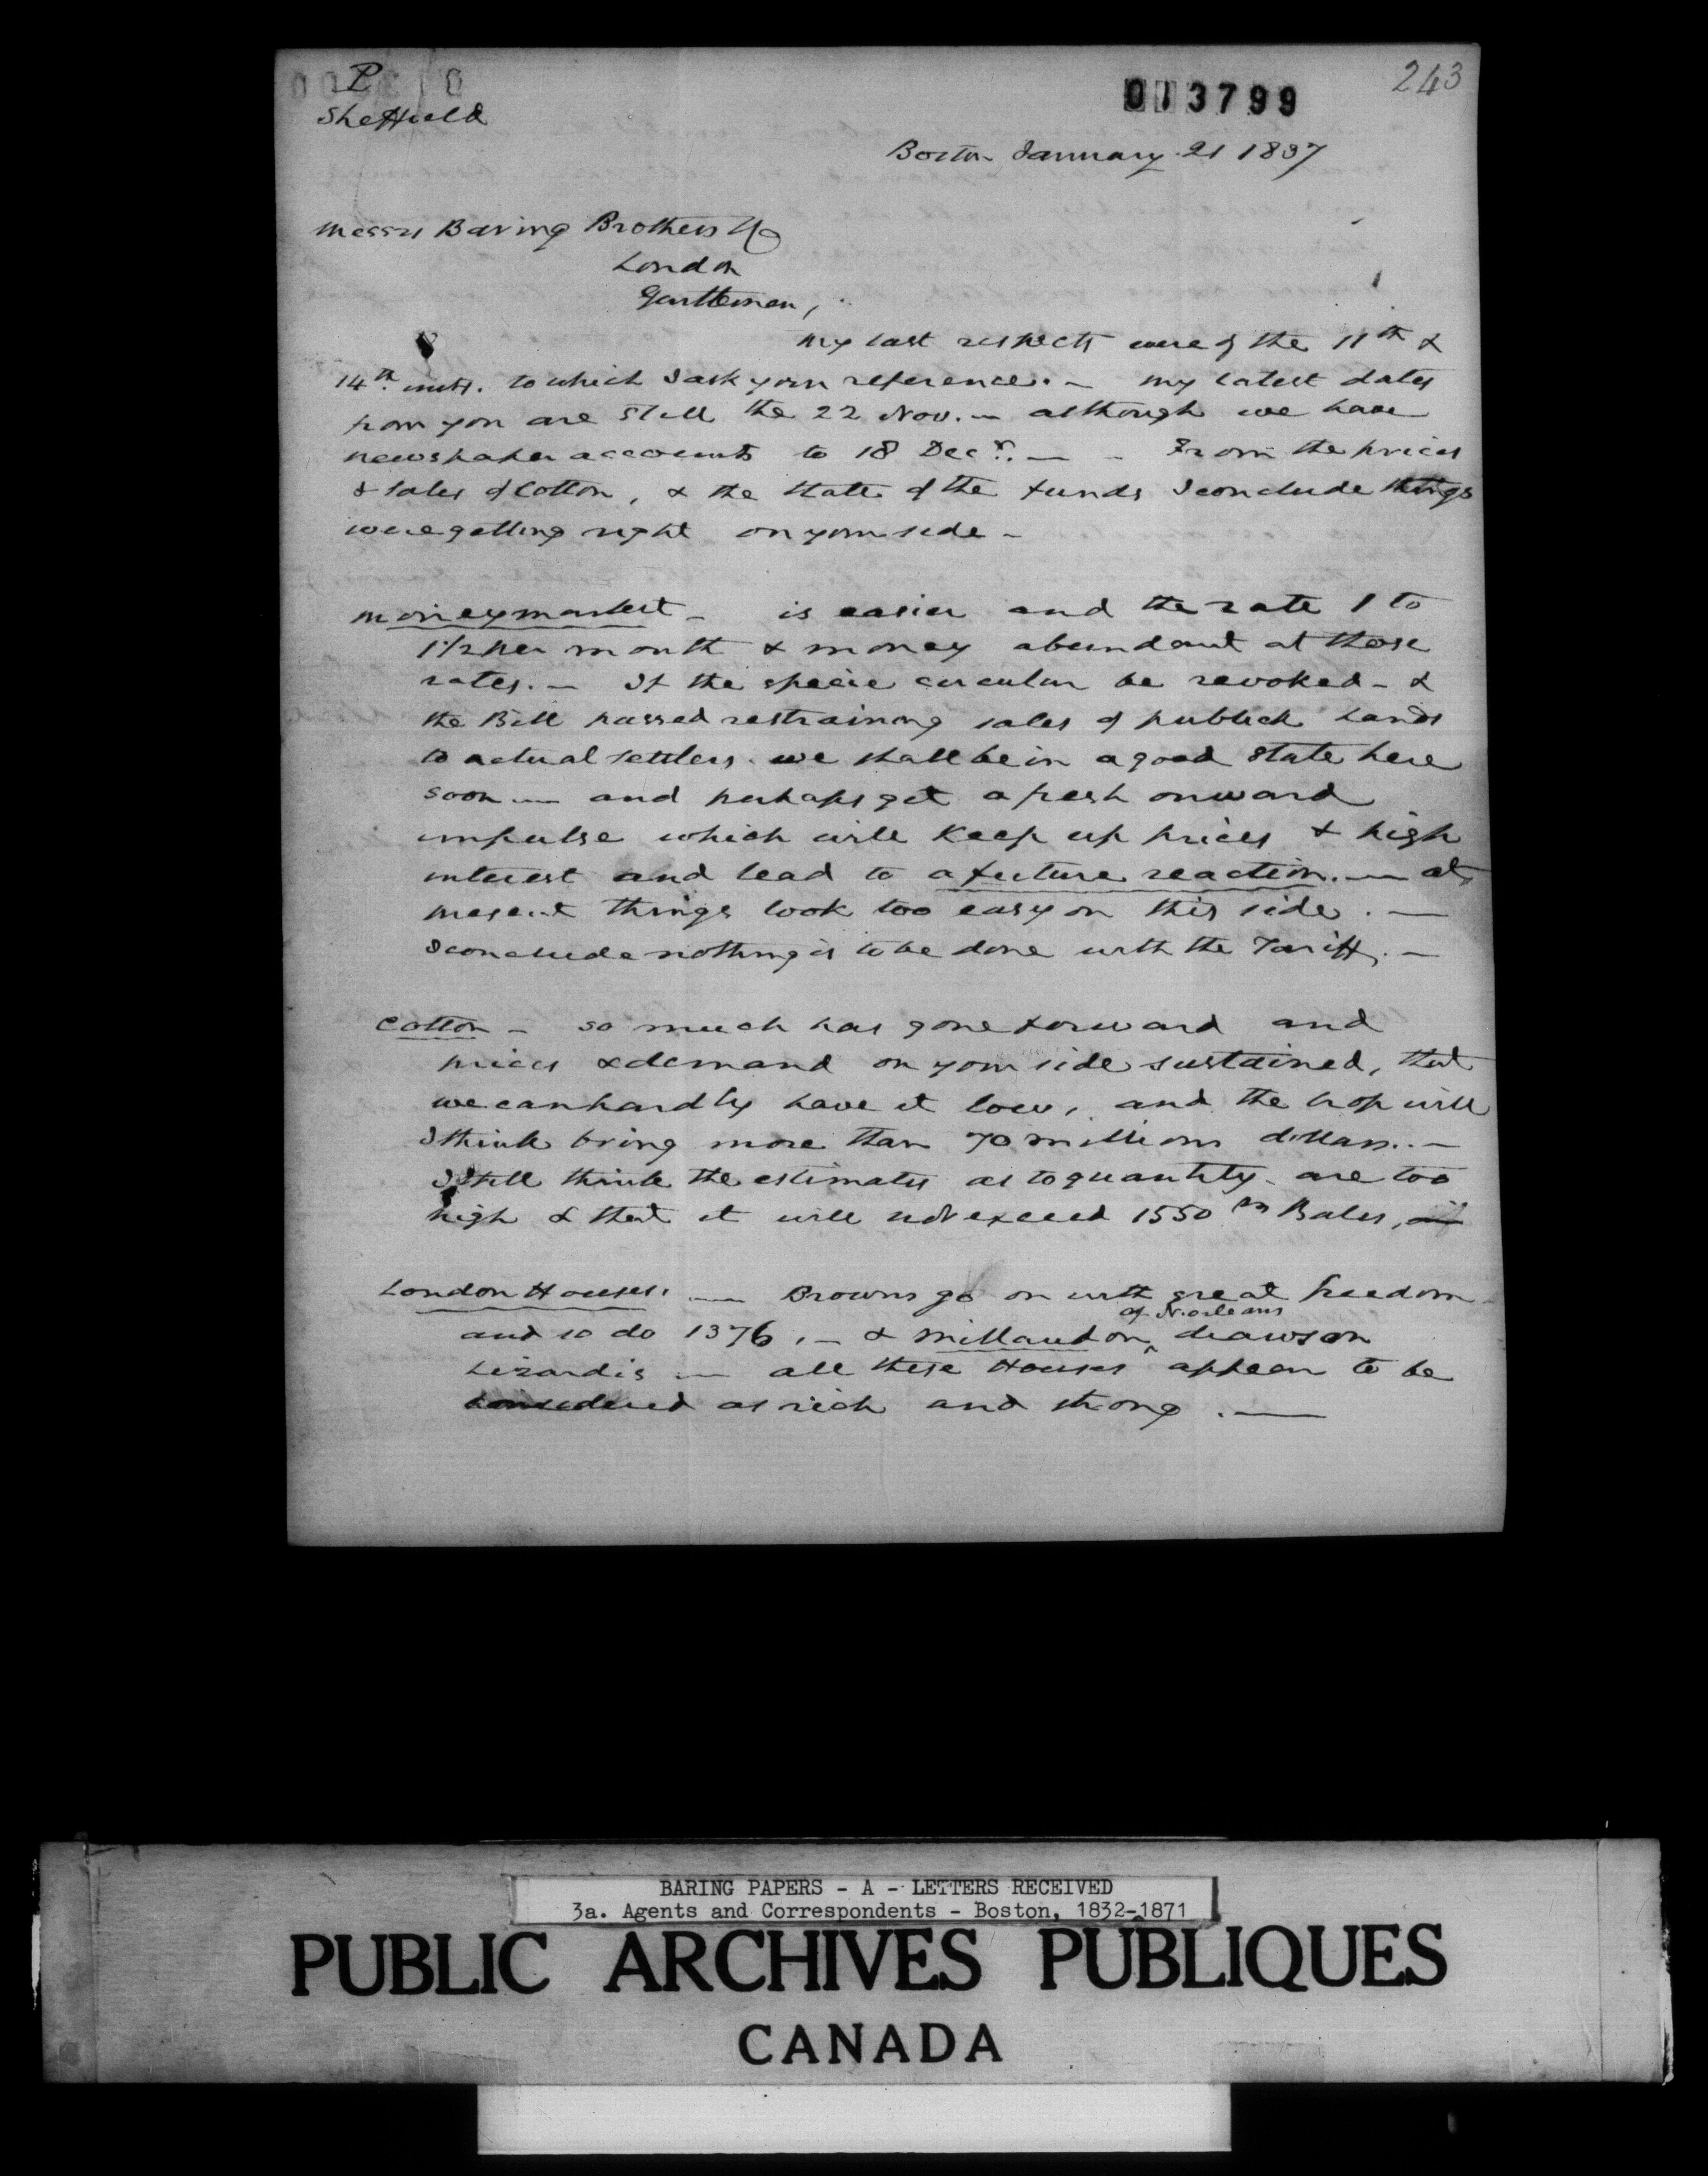 P
Sheffield
013799
243
Boston January 21 1837
Messrs Baring Brothers & Co
London
Gentlemen,
My last respects were of the 11th &
14th inst. to which I ask your reference. — my latest dates
from you are still the 22 Nov. — although we have
newspaper accounts to 18 Decr. — - From the prices
& sales of Cotton, & the state of the funds I conclude things
were getting right on your side —
Moneymarket — is easier and the rate 1 to
1 1/2 per month & money abundant at those
rates. — If the specie circular be revoked - &
the Bill passed restraining sales of publick lands
to actual settlers. we shall be in a good state here
soon — and perhaps get a fresh onward
impulse which will keep up prices & high
interest and lead to a future reaction. — at
present things look too easy on this side. —
I conclude nothing is to be done with the Tariff. —
Cotton — so much has gone forward and
prices & demand on your side sustained, that
we can hardly have it low, and the crop will
I think bring more than 70 millions dollars. —
I still think the estimates as to quantity are too
high & that it will not exceed 1550 m Bales,
London Houses. — Browns go on with great freedom —
of N. orleans
and so do 1376, — & Millaudon draws on
Lizardis — all these Houses appear to be
considered as rich and strong. —
BARING PAPERS - A - LETTERS RECEIVED
3a. Agents and Correspondents - Boston, 1832-1871
PUBLIC ARCHIVES PUBLIQUES
CANADA